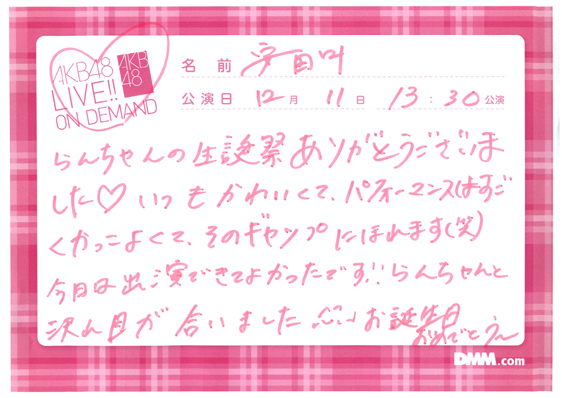 AKB48
LIVE!!
ON DEMAND
AKB
48
名前 安田叫
公演日 12月 11日 13:30公演
らんちゃんの生誕祭ありがとうございま
した♡いつもかわいくて、パフォーマンスはすご
くかっこよくて、そのギャップにほれます(笑)
今日は出演できてよかったです!!らんちゃんと
沢山目が合いました お誕生日
おめでとう〜
DMM.com